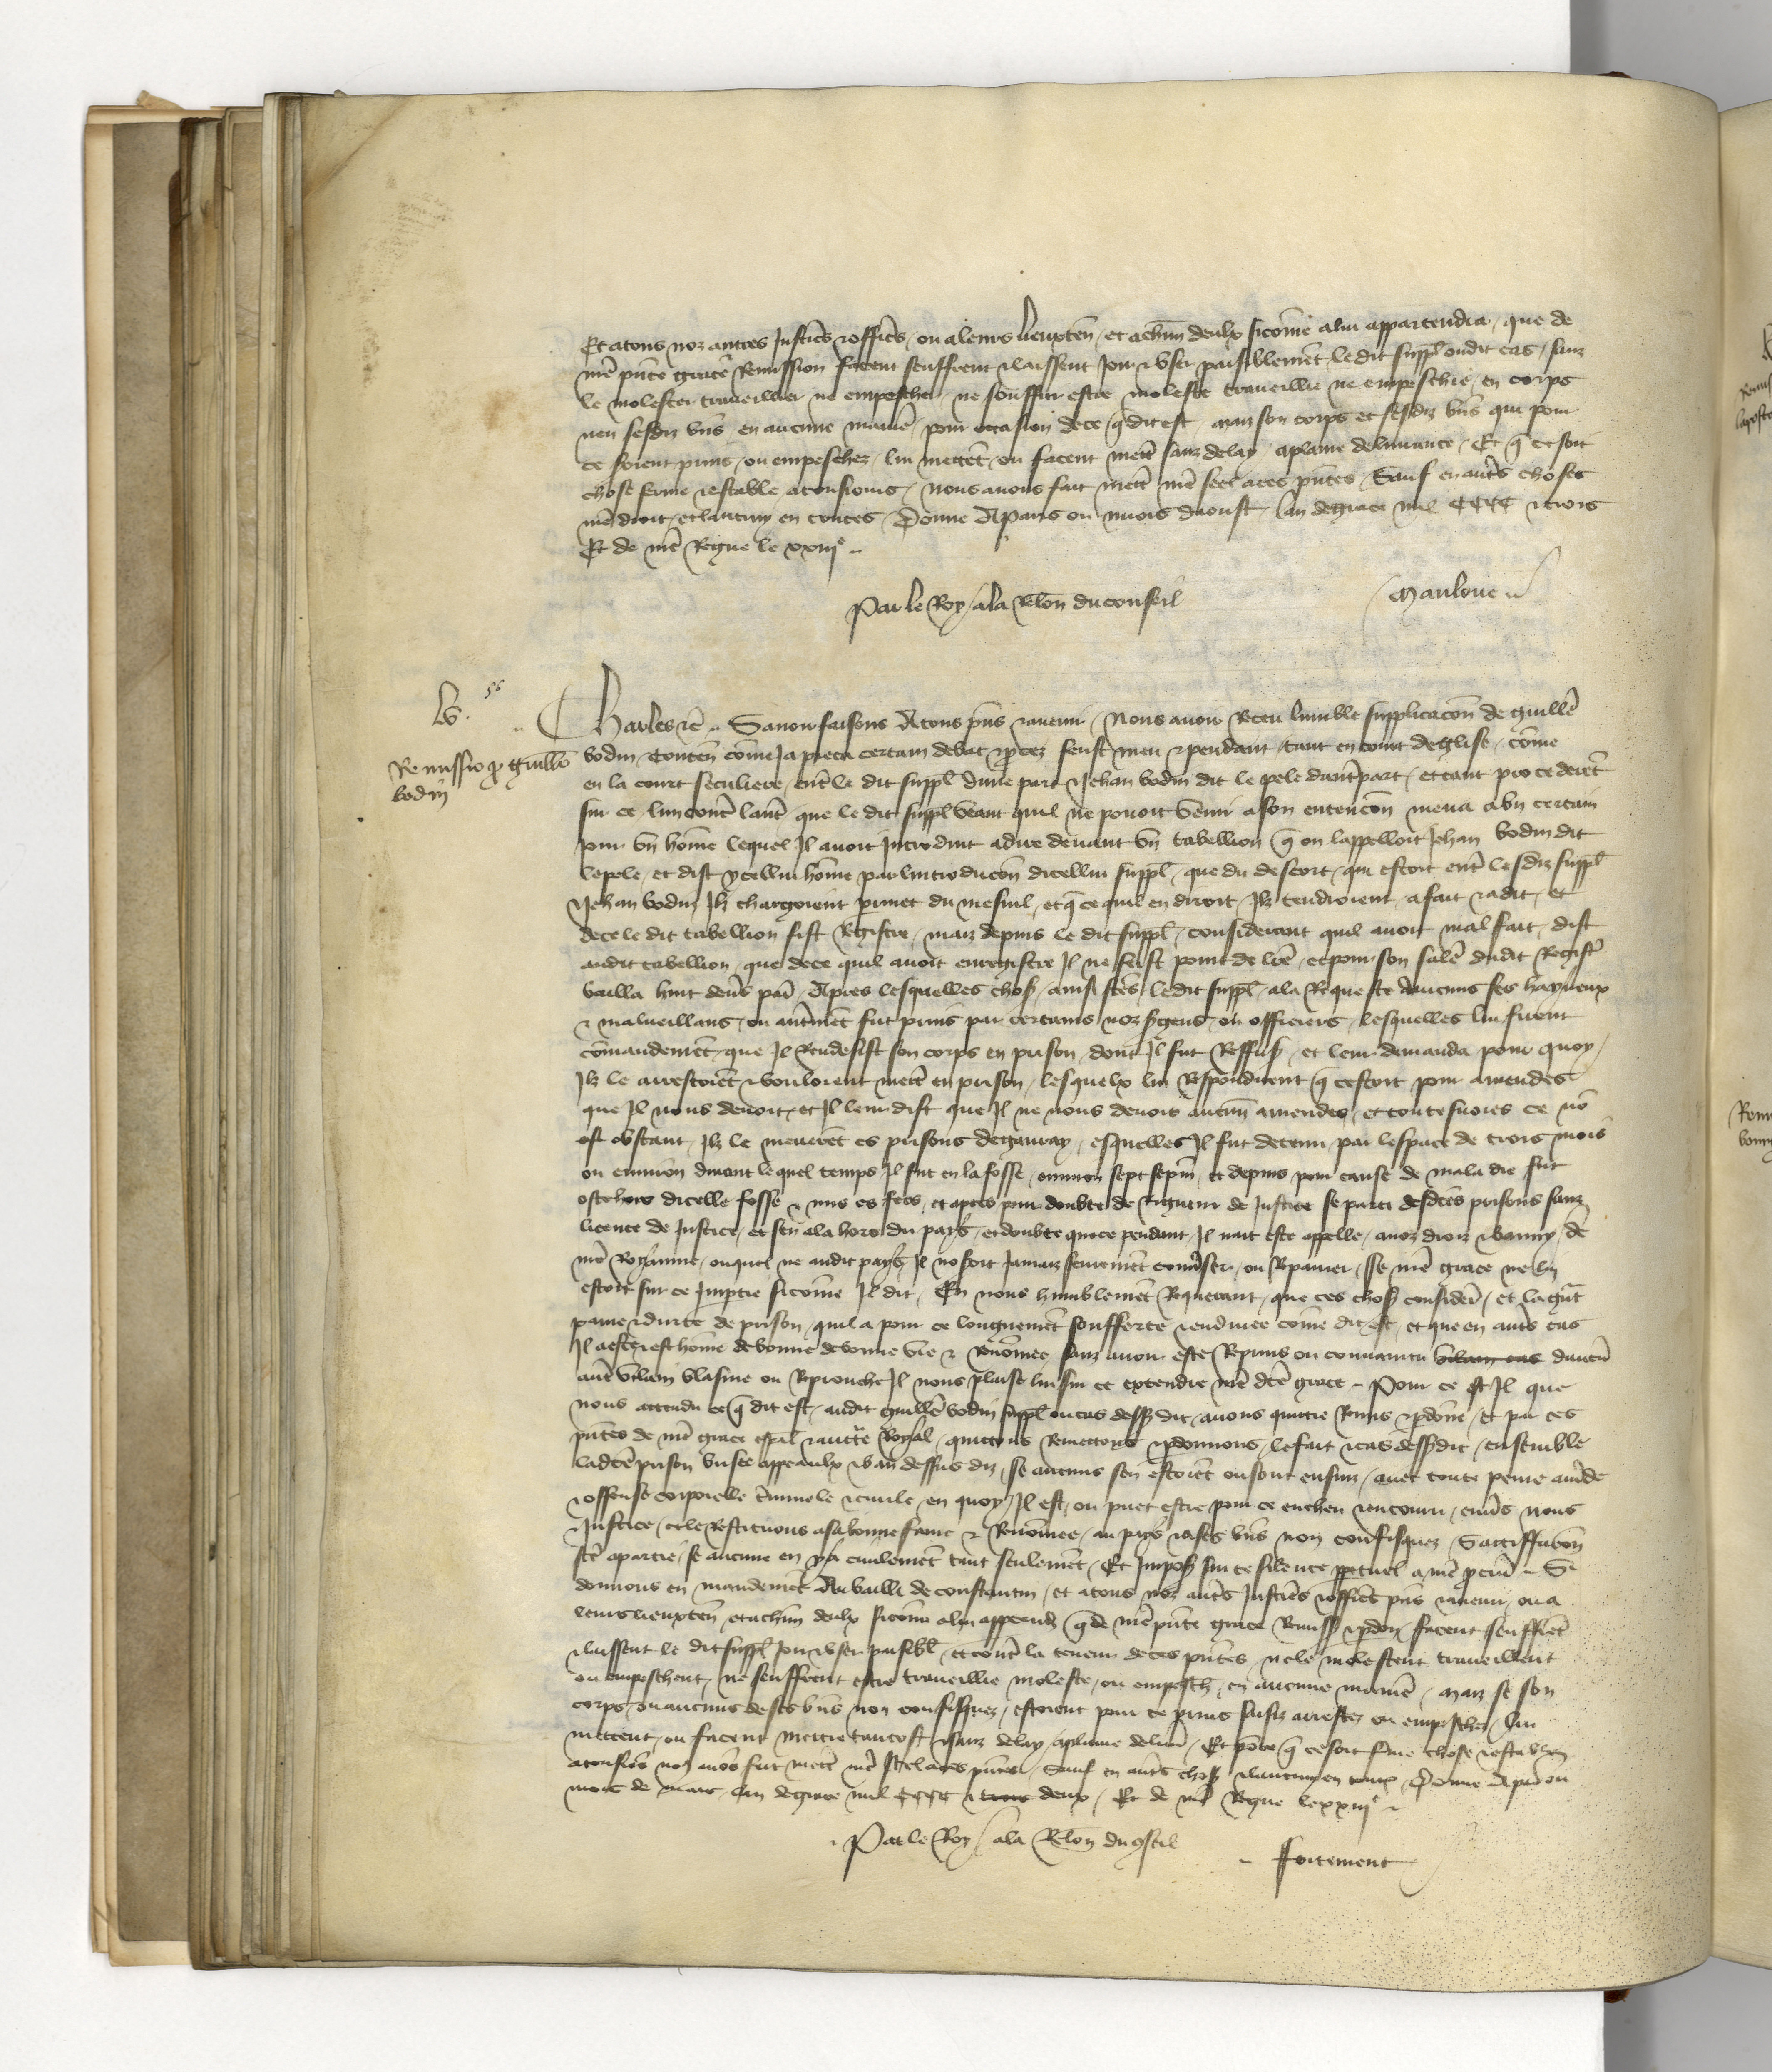 Et a tous noz autres justic̄s et offic̄s ou a leurs lieuxten̄ et a ch̄un deulx sicōme a lui appartendra que de
nr̄e pn̄te grace Remission facent seuffrent et laissent joir et user paisiblemēt le dit suppl̄ ou dit cas sanz
le molester traveillier ne empeschier ne souffrir estre moleste traveillie ne empeschie en corps
ne en sesdiz bn̄s en aucune maniē pour occasion de ce q̄ dit est maiz son corps et sesdiz bn̄s qui pour
ce seroient prins ou empeschez lui mettēt ou facent mett̄r sanz delay a plaine delivrance Et q̄ ce soit
chose ferme et estable a tousjours Nous avons fait mett̄r nr̄e seel a ces pn̄tes Sauf en aut̄s choses
nr̄e droit et lautruy en toutes Donne A Paris ou mois daoust lan de grace mil CCCC et trois
Et de nr̄e Regne le xxiijᵉ
Par le Roy a la Rel̄on du conseil
Manloue
lv. 56
Remissio p̱ Guill̄o
bodin
Charles etc̄ Savoir faisons A tous pn̄s et avenir Nous avoir Receu lumble supplicacōn de Guill̄e
bodin conten̄ cōme ja pieca certain debat et p̱cez feust meu et pendant tant en court deglise cōme
en la court seculiere ent̄ le dit suppl̄ dune part et Jehan bodin dit le pele daut̄ part et tant procederēt
sur ce lun cont̄ laut̄ que le dit suppl̄ veant quil ne povoit venir a son entencōn mena a un certain
jour un hōme lequel il avoit introduit a dire devant un tabellion q̄ on lappelloit Jehan bodin dit
le pele et dist ycellui hōme par lintroducōn dicellui suppl̄ que du descort qui estoit ent̄ lesdiz suppl̄
et Jehan bodin ilz chargoient perinet du mesnil et q̄ ce quil en diroit ilz tendroient a fait et a dit et
de ce le dit tabellion fist Registre maiz depuis le dit suppl̄ considerant quil avoit mal fait dist
audit tabellion que de ce quil avoit enregistre il ne feist point de lr̄e et pour son salēre dudit Regist̄
bailla huit den̄s par̄ Apres lesquelles chos̄ ainsi fc̄es le dit suppl̄ a la Requeste daucuns ses hayneux
et malveillans ou aut̄mēt fut prins par certains noz s̱gens ou officiers lesquelles lui firent
cōmandemēt que il Rendesist son corps en prison dont il fut Reffus̄ et leur demanda pour quoy
ilz le arrestoiēt et vouloient mett̄r en prison lesquelx lui Respondirent q̄ cestoit pour amendes
que il nous devoit et il leur dist que il ne nous devoit aucun̄ amendes et toutesvoies ce nō
obstant ilz le menerēt es prisons de gavray esquelles il fut detenu par lespace de trois mois
ou environ durant lequel temps il fut en la fosse environ sept sepm̄ et depuis pour cause de maladie fut
oste hors dicelle fosse et mis es fers et apres pour doubte de Rigueur de justice se parti desdc̄es prisons sanz
licence de justice et sen ala hors du pays et doubte que ce pendant il nait este appelle a noz droiz et banny de
nr̄e Royaume ouquel ne audit pays il noseroit jamaiz seuremēt conv̱ser ou Repairer se nr̄e grace ne lui
estoit sur ce imp̱tie sicōme il dit En nous humblemēt Requerant que ces chos̄ considēr et la g̱nt
paine et durte de prison quil a pour ce longuemēt soufferte et enduree cōme dit est et que en aut̄s cas
il a este et est hōme de bonne de bonne vie et Renōmee sanz avoir este Reprins ou convaincu vilain cas daucū
aut̄ vilain blasme ou Reprouche il nous plaise lui sur ce extendre nr̄e dc̄te grace Pour ce est il que
nous attendu ce q̄ dit est audit guill̄e bodin suppl̄ ou cas dess̄ dit avons quicte Remis et p̱donne et par ces
pn̄tes de nr̄e grace esp̄al et auct̄e Royal quictons Remettons et p̱donnons le fait et cas dess̄dit ensemble
ladc̄te prison brisee appeaulx et ban dessus diz se aucuns sen estoiēt ou sont ensuiz avec toute peine am̄de
et offense corporelle c̄minele et civile en quoy il est ou puet estre pour ce encheu et encouru env̱s nous
et justice et le Restituons a sa bonne fame et Renōmee au pays et a ses bn̄s non confisquez Sattiffacōn
fc̄e a partie se aucune en y a civilemēt tant seulemēt Et impos̄ sur ce silence p̱petuel a nr̄e p̱cur̄ Si
donnons en mandemēt Au bailli de constantin et a tous noz aut̄s justic̄s et offic̄s pn̄s et avenir ou a
leurs lieuxten̄ et a ch̄un deulx sicōme a lui apptend̄ q̄ de nr̄e pn̄te grace Remiss̄ et p̱don̄ facent seuffrēt
et laissent le dit suppl̄ joir et user paisibl̄ et cont̄ la teneur de ces pn̄tes ne le molestent traveillent
ou empeschent ne seuffrent estre traveillie moleste ou empesch̄ en aucune maniē maiz se son
corps ou aucuns de ses bn̄s non confisquez estoient pour ce prins saisiz arrestez ou empeschez lui
mettent ou facent mettre tantost et sanz delay a plaine deliv̄r Et pōr ce q̄ ce soit f̱me chose et estable
a tousjōrs noꝰ avōs fait mett̄r nr̄e seel a ces pn̄tes Sauf en aut̄s chos̄ et lautruy en toutes Donne A paris ou
mois de mars lan de grace mil CCCC et trois deux Et de nr̄e Regne le xxiijᵉ
Par le Roy a la Rel̄on du ꝯseil
ffortement